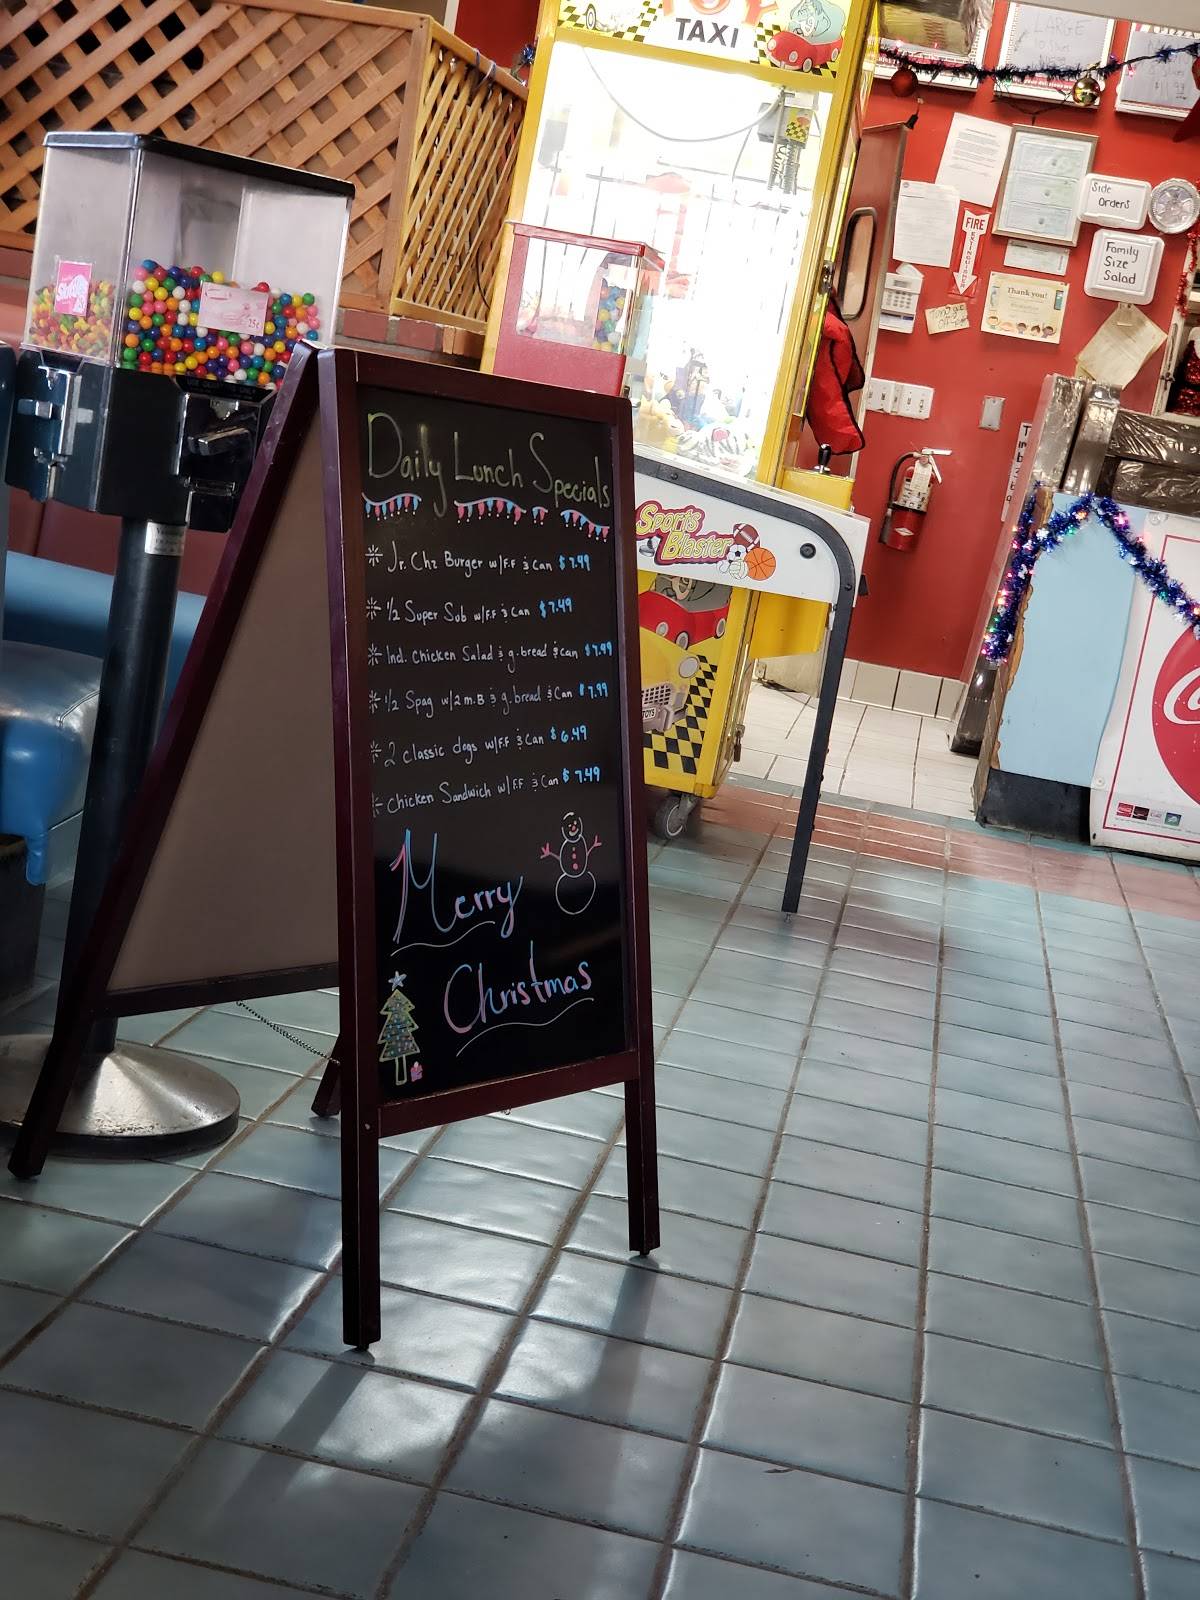 TAXI
LARGE
Side
Orders
Family
Size
Salad
FIRE
EXTINGUISHER
Thank you!
25¢
Sports
Blaster
Daily Lunch Specials
Jr. Chz Burger w/F.F & Can $7.49
1/2 Super Sub w/F.F & Can $7.49
Ind. Chicken Salad & g. bread & Can $7.49
1/2 Spag w/2 m.B & g. bread & Can $7.99
2 classic dogs w/F.F & Can $6.49
Chicken Sandwich w/F.F & Can $7.49
Merry
Christmas